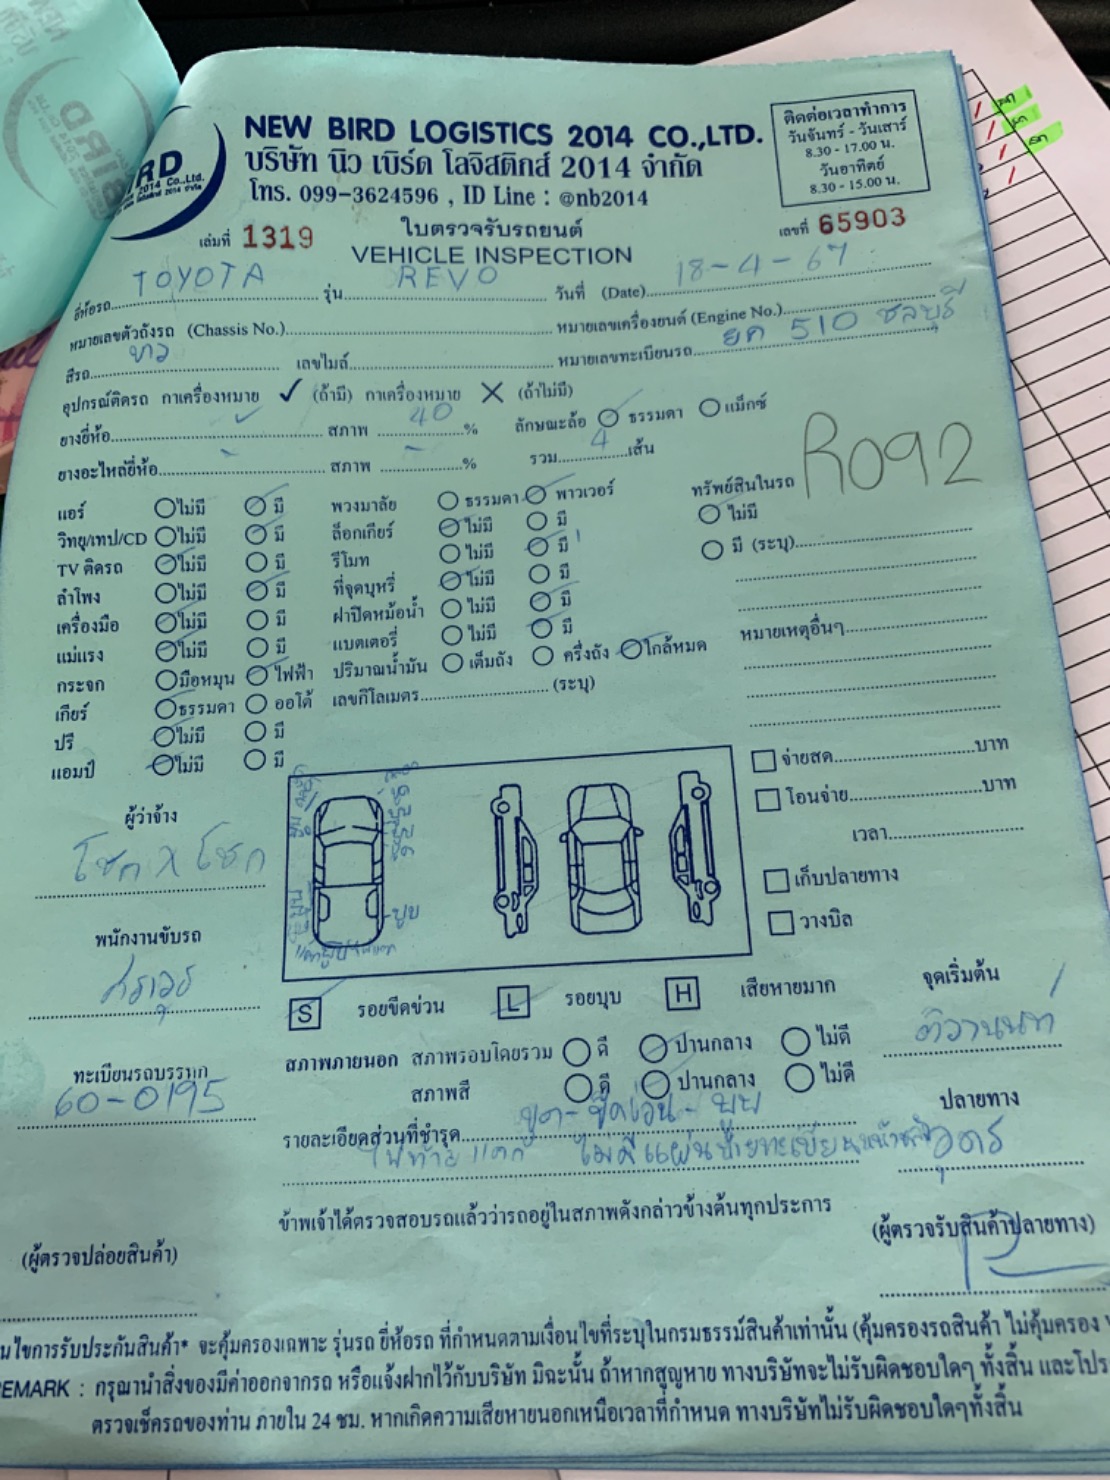 NEW BIRD LOGISTICS 2014 CO.,LTD.
บริษัท นิว เบิร์ด โลจิสติกส์ 2014 จำกัด
โทร. 099-3624596 , ID Line : @nb2014
ติดต่อเวลาทำการ
วันจันทร์ - วันเสาร์
8.30 - 17.00 น.
วันอาทิตย์
8.30 - 15.00 น.
เล่มที่ 1319
ใบตรวจรับรถยนต์
VEHICLE INSPECTION
เลขที่ 65903
ยี่ห้อรถ TOYOTA รุ่น REVO วันที่ (Date) 18-4-67
หมายเลขตัวถังรถ (Chassis No.) หมายเลขเครื่องยนต์ (Engine No.)
สีรถ ขาว เลขไมล์ หมายเลขทะเบียนรถ ยค 510 ชลบุรี
อุปกรณ์ติดรถ กาเครื่องหมาย ✓ (ถ้ามี) กาเครื่องหมาย ✕ (ถ้าไม่มี)
ยางยี่ห้อ สภาพ 40 % ลักษณะล้อ ธรรมดา แม็กซ์
ยางอะไหล่ยี่ห้อ - สภาพ - % รวม 4 เส้น
R092
แอร์ ไม่มี มี พวงมาลัย ธรรมดา พาวเวอร์ ทรัพย์สินในรถ
วิทยุ/เทป/CD ไม่มี มี ล็อกเกียร์ ไม่มี มี ไม่มี
TV ติดรถ ไม่มี มี รีโมท ไม่มี มี 1 มี (ระบุ)
ลำโพง ไม่มี มี ที่จุดบุหรี่ ไม่มี มี
เครื่องมือ ไม่มี มี ฝาปิดหม้อน้ำ ไม่มี มี
แม่แรง ไม่มี มี แบตเตอรี่ ไม่มี มี หมายเหตุอื่นๆ
กระจก มือหมุน ไฟฟ้า ปริมาณน้ำมัน เต็มถัง ครึ่งถัง ใกล้หมด
เกียร์ ธรรมดา ออโต้ เลขกิโลเมตร (ระบุ)
ปรี ไม่มี มี
แอมป์ ไม่มี มี
จ่ายสด บาท
โอนจ่าย บาท
เวลา
เก็บปลายทาง
วางบิล
ผู้ว่าจ้าง
โชค X โชค
บุบ
พนักงานขับรถ
ทะเบียนรถบรรทุก
60-0195
S รอยขีดข่วน L รอยบุบ H เสียหายมาก
จุดเริ่มต้น
ติวานนท์
สภาพภายนอก สภาพรอบโดยรวม ดี ปานกลาง ไม่ดี
สภาพสี ดี ปานกลาง ไม่ดี
ปลายทาง
อุดร
รายละเอียดส่วนที่ชำรุด ขูด - ขีดข่วน - บุบ
ไฟท้ายแตก ไม่มีแผ่นป้ายทะเบียนหน้าหลัง
ข้าพเจ้าได้ตรวจสอบรถแล้วว่ารถอยู่ในสภาพดังกล่าวข้างต้นทุกประการ
(ผู้ตรวจปล่อยสินค้า)
(ผู้ตรวจรับสินค้าปลายทาง)
นไขการรับประกันสินค้า* จะคุ้มครองเฉพาะ รุ่นรถ ยี่ห้อรถ ที่กำหนดตามเงื่อนไขที่ระบุในกรมธรรม์สินค้าเท่านั้น (คุ้มครองรถสินค้า ไม่คุ้มครอง
EMARK : กรุณานำสิ่งของมีค่าออกจากรถ หรือแจ้งฝากไว้กับบริษัท มิฉะนั้น ถ้าหากสูญหาย ทางบริษัทจะไม่รับผิดชอบใดๆ ทั้งสิ้น และโปร
ตรวจเช็ครถของท่าน ภายใน 24 ชม. หากเกิดความเสียหายนอกเหนือเวลาที่กำหนด ทางบริษัทไม่รับผิดชอบใดๆทั้งสิ้น